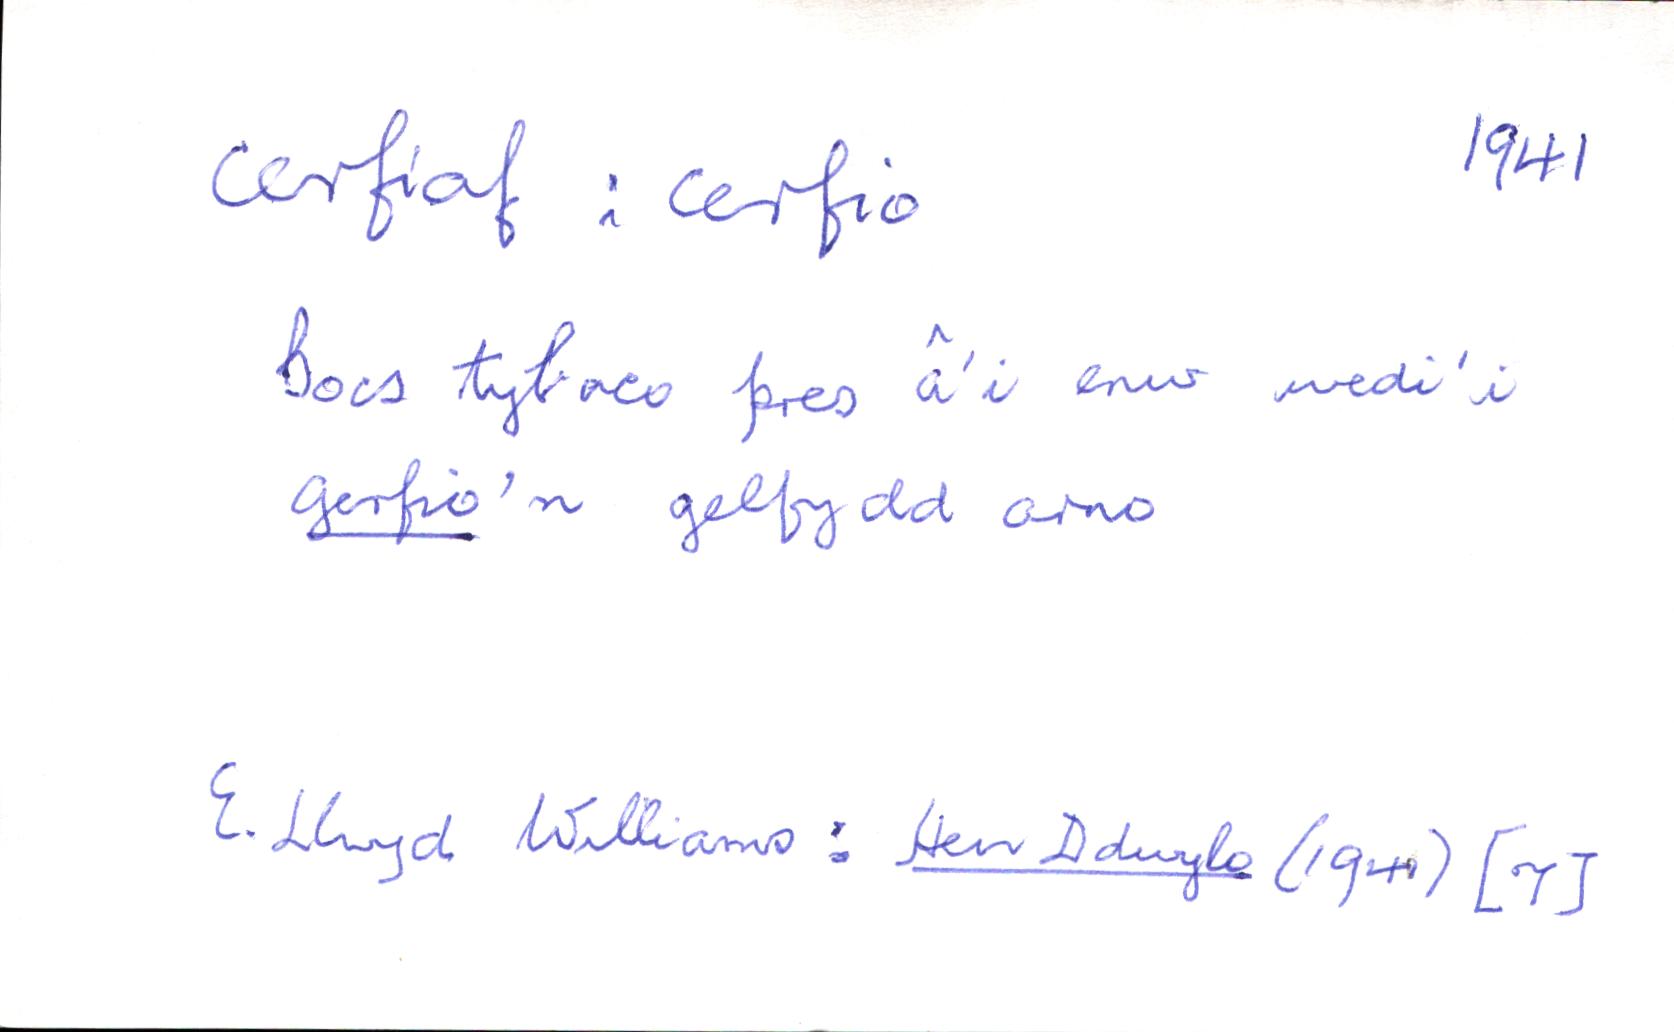 cerfiaf : cerfio 1941
Bocs tybaco pres â'i enw wedi'i
gerfio'n gelfydd arno
E. Llwyd Williams : Hen Ddwylo (1941) [7]